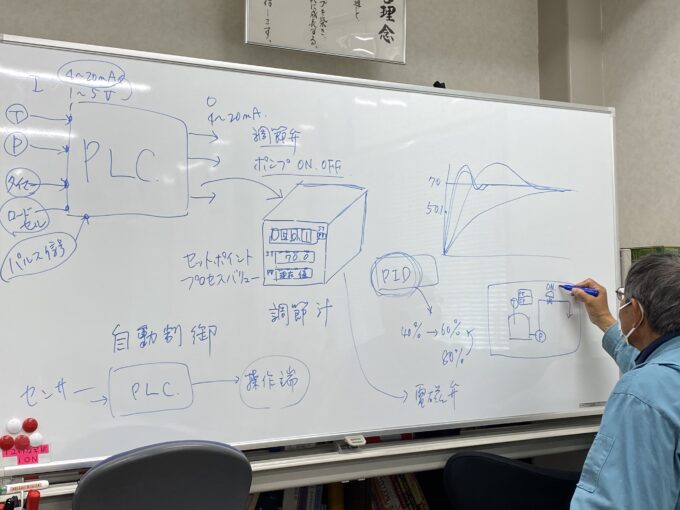 理念
I
4~20mA
1~5V
T
P
タイマー
ロードセル
パルス信号
PLC.
O
4~20mA.
調節弁
ポンプ ON.OFF.
セットポイント
プロセスバリュー
700
現在値
調節計
自動制御
センサー
PLC.
操作端
PID
40%→60%
80%
電磁弁
70
50%
ON
T
P